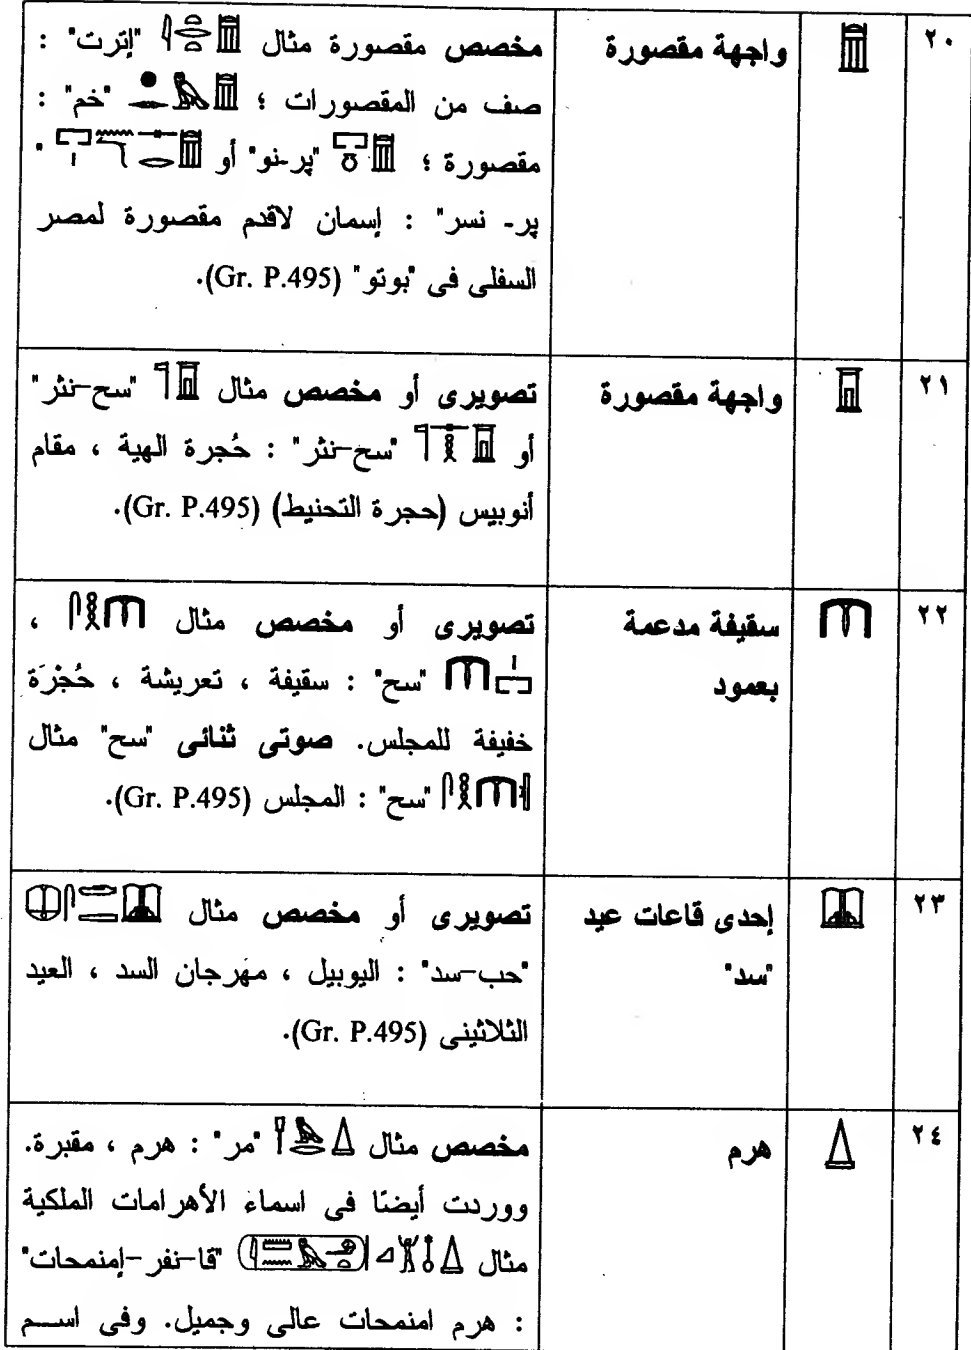 ٢٠ واجهة مقصورة مخصص مقصورة مثال "إترت" :
صف من المقصورات ؛ "خم" :
مقصورة ؛ "پر-نو" أو "
پر- نسر" : إسمان لاقدم مقصورة لمصر
السفلى فى "بوتو" (Gr. P.495).
٢١ واجهة مقصورة تصويرى أو مخصص مثال "سح-نثر"
أو "سح-نثر" : حُجرة الهية ، مقام
أنوبيس (حجرة التحنيط) (Gr. P.495).
٢٢ سقيفة مدعمة تصويرى أو مخصص مثال ،
بعمود "سح" : سقيفة ، تعريشة ، حُجْرَة
خفيفة للمجلس. صوتى ثنائى "سح" مثال
"سح" : المجلس (Gr. P.495).
٢٣ إحدى قاعات عيد تصويرى أو مخصص مثال
"سد" "حب-سد" : اليوبيل ، مهرجان السد ، العيد
الثلاثينى (Gr. P.495).
٢٤ هرم مخصص مثال "مر" : هرم ، مقبرة.
ووردت أيضًا فى اسماء الأهرامات الملكية
مثال "قا-نفر-إمنمحات"
: هرم امنمحات عالى وجميل. وفى اســم